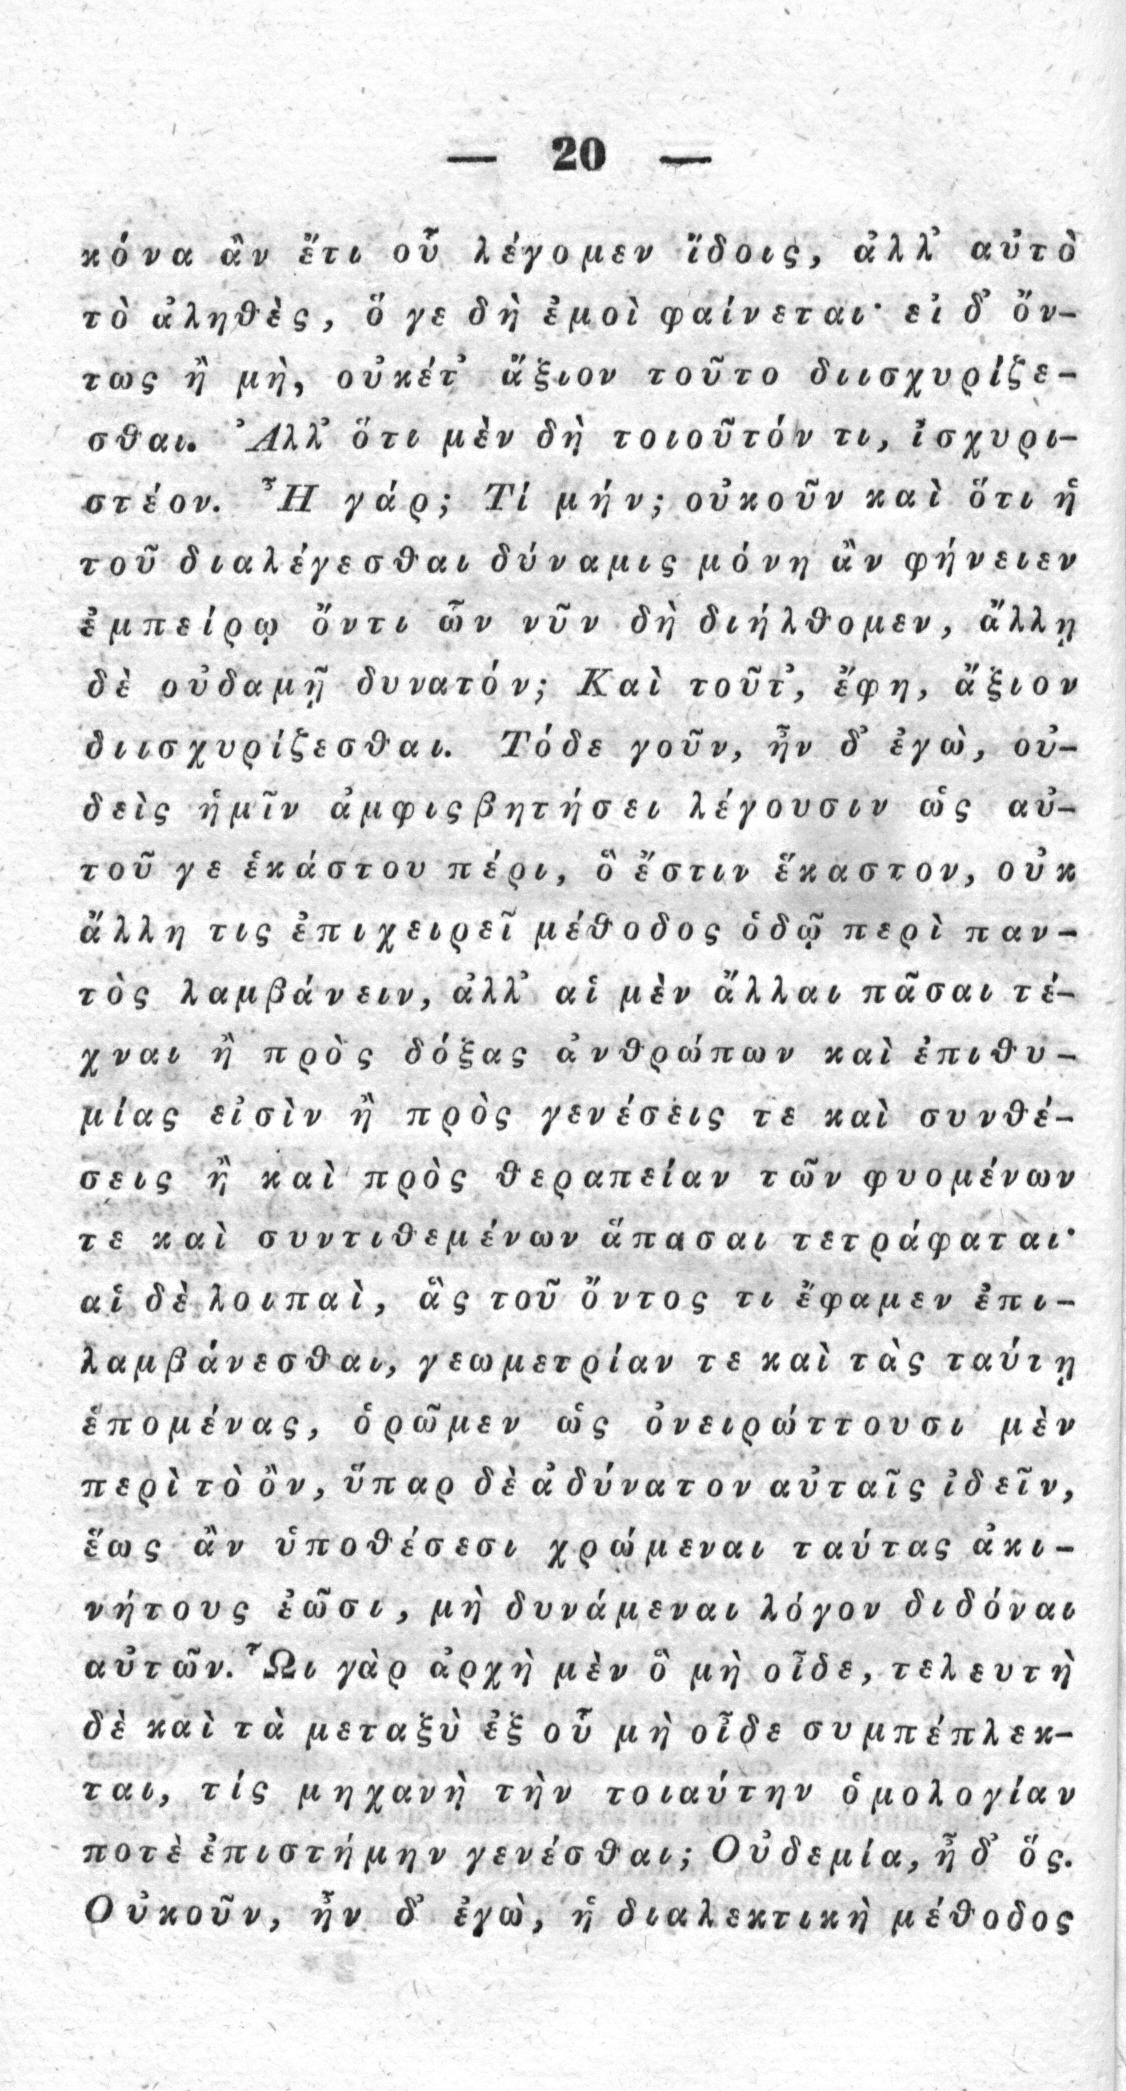 — 20 —
κόνα ἂν ἔτι οὗ λέγομεν ἴδοις, ἀλλ᾽ αὐτὸ
τὸ ἀληθὲς, ὅ γε δὴ ἐμοὶ φαίνεται· εἰ δ᾽ ὄν-
τως ἢ μὴ, οὐκέτ᾽ ἄξιον τοῦτο διισχυρίζε-
σθαι. Ἀλλ᾽ ὅτι μὲν δὴ τοιοῦτόν τι, ἰσχυρι-
στέον. Ἦ γάρ; Τί μήν; οὐκοῦν καὶ ὅτι ἡ
τοῦ διαλέγεσθαι δύναμις μόνη ἂν φήνειεν
ἐμπείρῳ ὄντι ὧν νῦν δὴ διήλθομεν, ἄλλῃ
δὲ οὐδαμῇ δυνατόν; Καὶ τοῦτ᾽, ἔφη, ἄξιον
διισχυρίζεσθαι. Τόδε γοῦν, ἦν δ᾽ ἐγὼ, οὐ-
δεὶς ἡμῖν ἀμφιςβητήσει λέγουσιν ὡς αὐ-
τοῦ γε ἑκάστου πέρι, ὃ ἔστιν ἕκαστον, οὐκ
ἄλλη τις ἐπιχειρεῖ μέθοδος ὁδῷ περὶ παν-
τὸς λαμβάνειν, ἀλλ᾽ αἱ μὲν ἄλλαι πᾶσαι τέ-
χναι ἢ πρὸς δόξας ἀνθρώπων καὶ ἐπιθυ-
μίας εἰσὶν ἢ πρὸς γενέσεις τε καὶ συνθέ-
σεις ἢ καὶ πρὸς θεραπείαν τῶν φυομένων
τε καὶ συντιθεμένων ἅπασαι τετράφαται·
αἱ δὲ λοιπαὶ, ἃς τοῦ ὄντος τι ἔφαμεν ἐπι-
λαμβάνεσθαι, γεωμετρίαν τε καὶ τὰς ταύτῃ
ἑπομένας, ὁρῶμεν ὡς ὀνειρώττουσι μὲν
περὶ τὸ ὂν, ὕπαρ δὲ ἀδύνατον αὐταῖς ἰδεῖν,
ἕως ἂν ὑποθέσεσι χρώμεναι ταύτας ἀκι-
νήτους ἐῶσι, μὴ δυνάμεναι λόγον διδόναι
αὐτῶν. Ὧι γὰρ ἀρχὴ μὲν ὃ μὴ οἶδε, τελευτὴ
δὲ καὶ τὰ μεταξὺ ἐξ οὗ μὴ οἶδε συμπέπλεκ-
ται, τίς μηχανὴ τὴν τοιαύτην ὁμολογίαν
ποτὲ ἐπιστήμην γενέσθαι; Οὐδεμία, ἦ δ᾽ ὅς.
Οὐκοῦν, ἦν δ᾽ ἐγὼ, ἡ διαλεκτικὴ μέθοδος